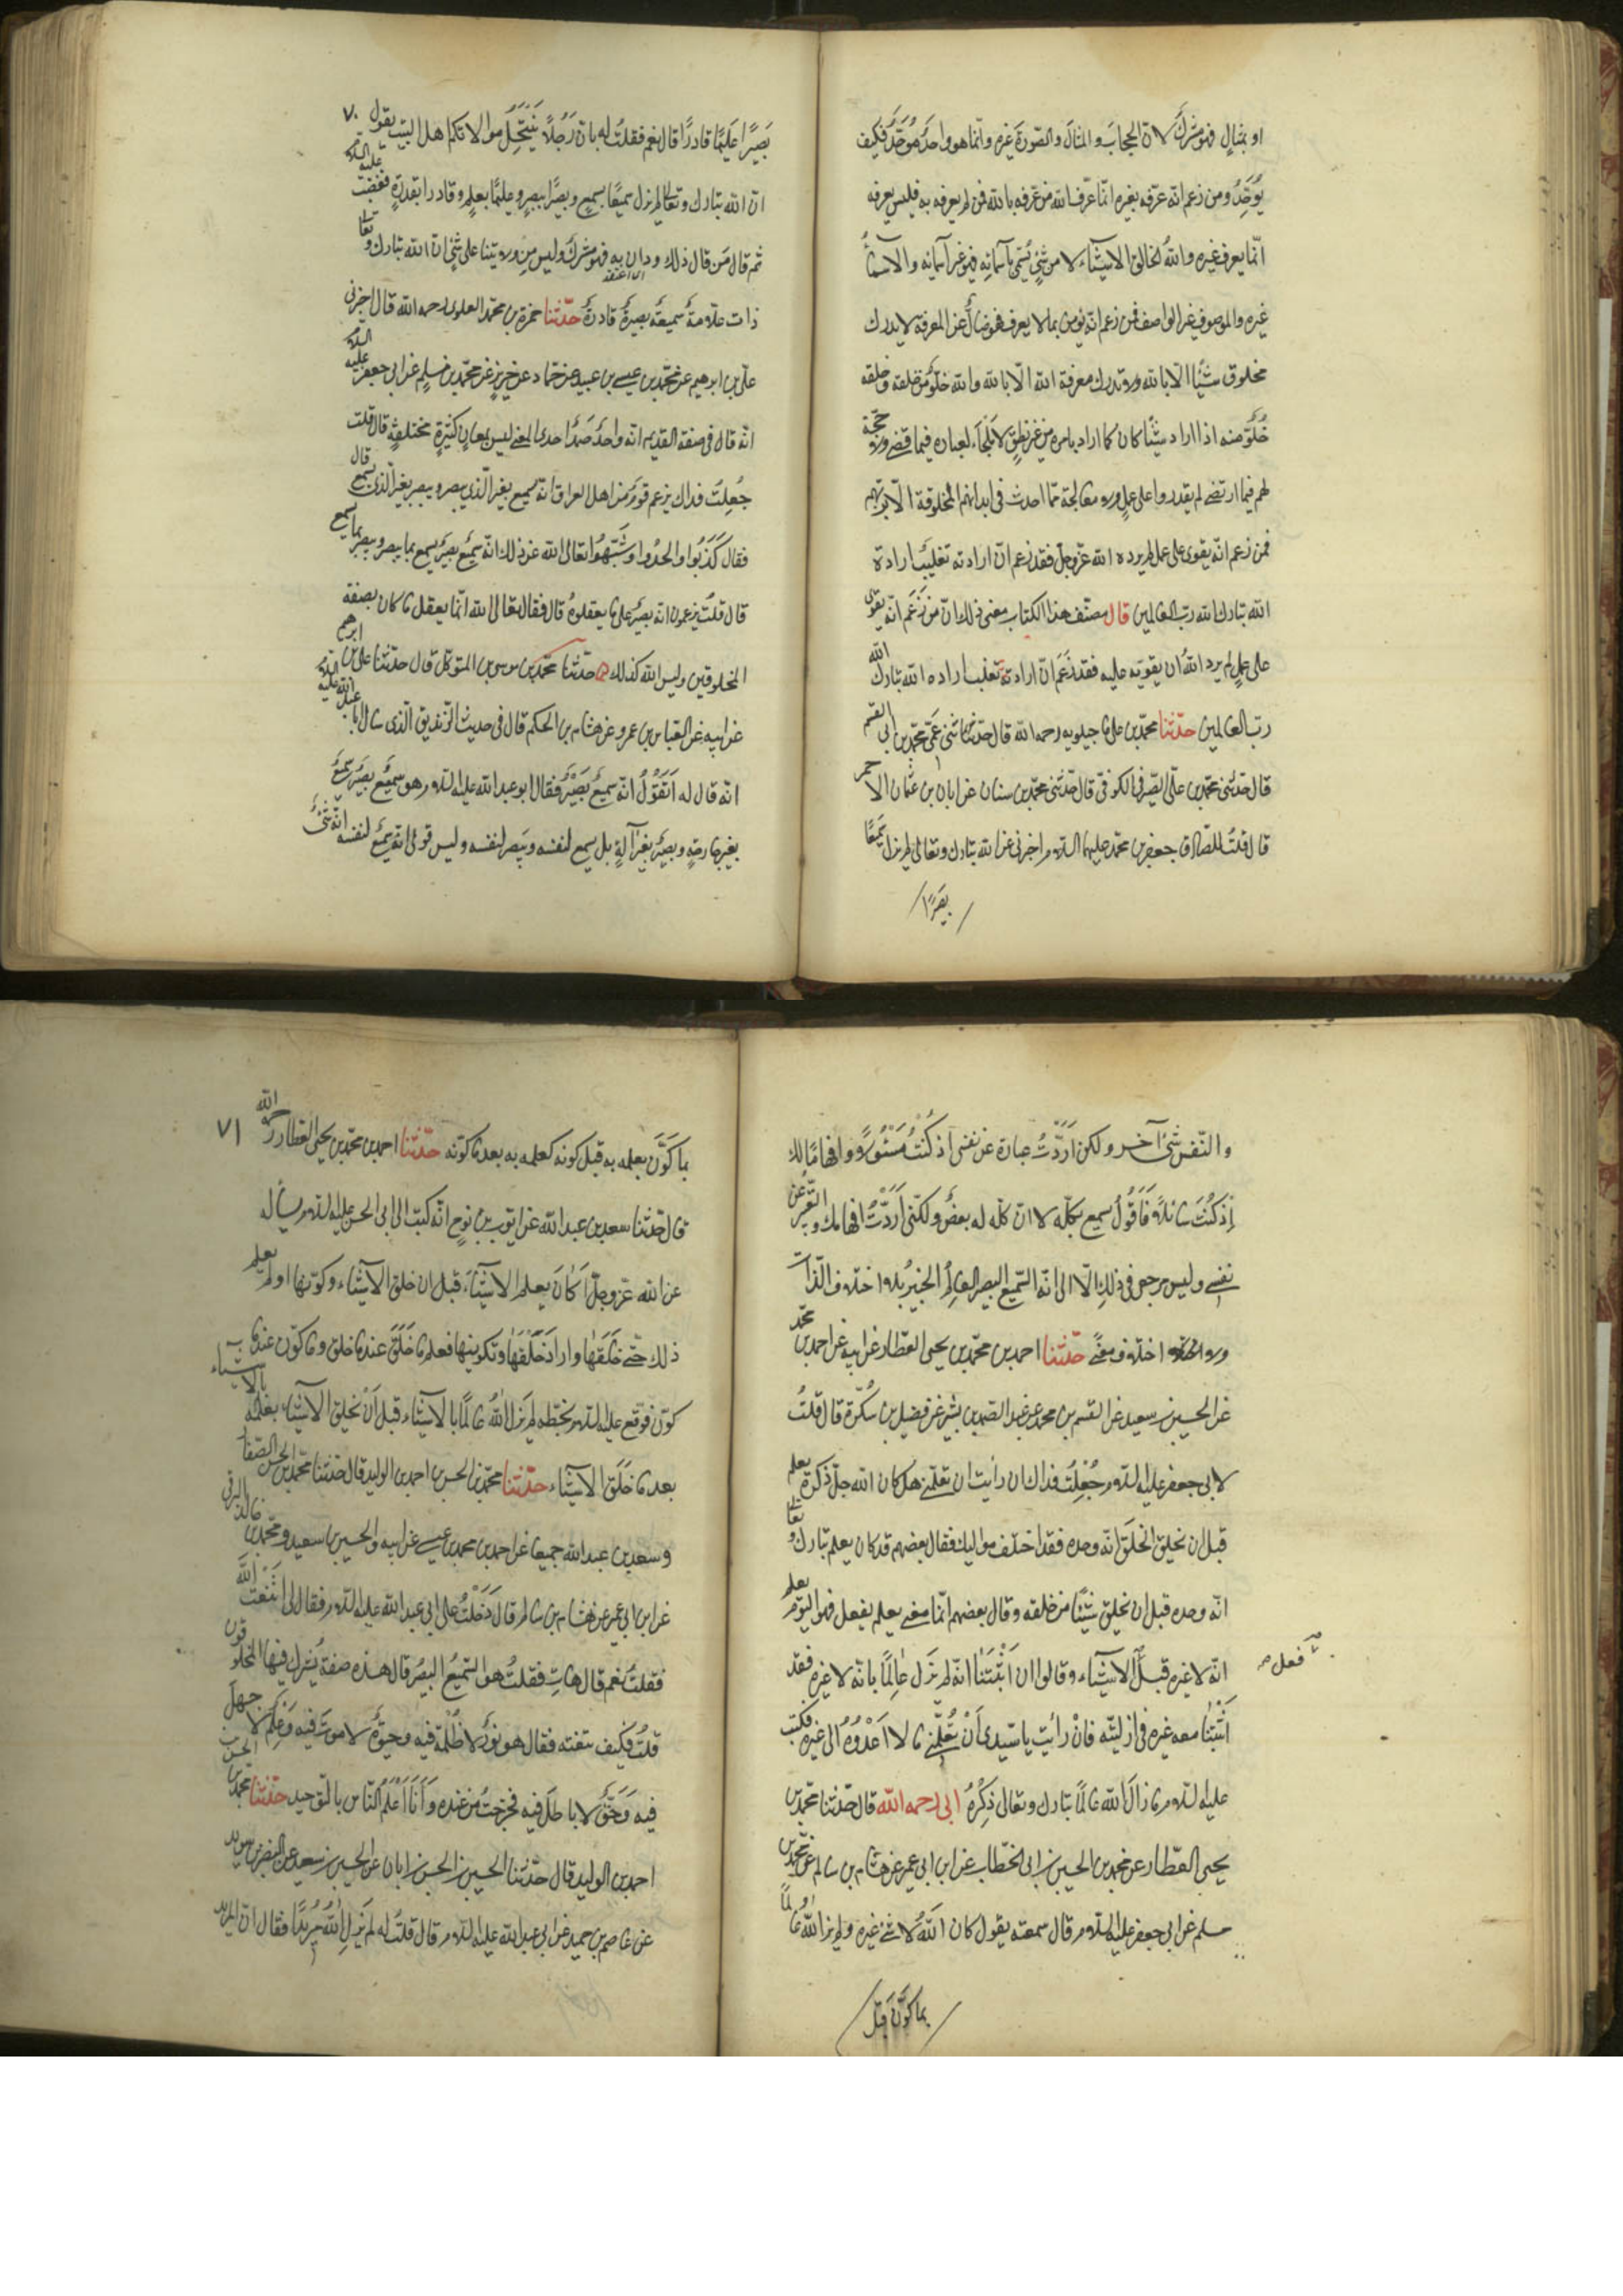 او بمثال فهو مشرك لان الحجاب والمثال والصورة غيره وانما هو واحد موحد فكيف
يوحد من زعم انه عرفه بغيره انما عرف الله من عرفه بالله فمن لم يعرفه به فليس يعرفه
انما يعرف غيره والله خالق الاشياء لا من شئ يسمى باسمائه فهو غير اسمائه والاسماء
غيره والموصوف غير الواصف فمن زعم انه يؤمن بما لا يعرف فهو ضال عن المعرفة لا يدرك
مخلوق شيئا الا بالله ولا تدرك معرفة الله الا بالله والله خلو من خلقه وخلقه
خلو منه اذا اراد شيئا كان كما اراد بامره من غير نطق لا ملجأ لعباده فيما قضى ولا حجة
لهم فيما ارتضى لم يقدروا على عمل ولا معالجة مما احدث في ابدانهم المخلوقة الا بربهم
فمن زعم انه يقوى على عمل لم يرده الله عز وجل فقد زعم ان ارادته تغلب ارادة
الله تبارك الله رب العالمين قال مصنف هذا الكتاب معنى ذلك ان من زعم انه يقوى
على عمل لم يرد الله ان يقويه عليه فقد زعم ان ارادته تغلب ارادة الله تبارك الله
رب العالمين حدثنا محمد بن على ماجيلويه رحمه الله قال حدثنى عمى محمد بن ابى القسم
قال حدثنى محمد بن على الصيرفى الكوفى قال حدثنى محمد بن سنان عن ابان بن عثمان الاحمر
قال قلت للصادق جعفر بن محمد عليهما السلام اخبرنى عن الله تبارك وتعالى لم يزل سميعا
بصيرا
٧٠
بصيرا عليما قادرا قال نعم فقلت له بان رجلا ينتحل موالاتكم اهل البيت يقول
ان الله تبارك وتعالى لم يزل سميعا بسمع وبصيرا ببصر وعليما بعلم وقادرا بقدرة فغضب عليه السلام
ثم قال من قال ذلك ودان به فهو مشرك وليس من ولايتنا على شئ ان الله تبارك وتعالى
اى اعتقد
ذات علامة سميعة بصيرة قادرة حدثنا حمزة بن محمد العلوى رحمه الله قال اخبرنى
على بن ابرهيم عن محمد بن عيسى بن عبيد عن حماد عن حريز عن محمد بن مسلم عن ابى جعفر عليه السلام
انه قال فى صفة القديم انه واحد صمد احدى المعنى ليس بمعان كثيرة مختلفة قال قلت
جعلت فداك يزعم قوم من اهل العراق انه يسمع بغير الذى يبصر ويبصر بغير الذى يسمع قال
فقال كذبوا والحدوا وشبهوا تعالى الله عن ذلك انه سميع بصير يسمع بما يبصر ويبصر بما يسمع
قال قلت يزعمون انه بصير على ما يعقلوه قال فقال تعالى الله انما يعقل ما كان بصفة
المخلوقين وليس الله كذلك حدثنا محمد بن موسى بن المتوكل قال حدثنا على بن ابرهيم
عن ابيه عن العباس بن عمرو عن هشام بن الحكم قال فى حديث الزنديق الذى سال ابا عبد الله عليه السلام
انه قال له اتقول انه سميع بصير فقال ابو عبد الله عليه السلام هو سميع بصير سميع
بغير جارحة وبصير بغير آلة بل يسمع لنفسه ويبصر لنفسه وليس قولى انه يسمع لنفسه انه شئ
والنفس شئ آخر ولكن اردت عبارة عن نفسى اذ كنت مسئولا وافهاما لك
اذ كنت سائلا فاقول سميع بكله لا ان كله له بعض ولكنى اردت افهامك والتعبير عن
نفسى وليس مرجعى فى ذلك الا الى انه السميع البصير العالم الخبير بلا اختلاف الذات
ولا اختلاف معنى حدثنا احمد بن محمد بن يحيى العطار عن ابيه عن احمد بن محمد
عن الحسين بن سعيد عن القسم بن محمد عن عبد الصمد بن بشير عن فضيل بن سكرة قال قلت
لابى جعفر عليه السلام جعلت فداك ان رأيت ان تعلمنى هل كان الله جل ذكره يعلم
قبل ان يخلق الخلق انه وحده فقد اختلف مواليك فقال بعضهم قد كان يعلم تبارك وتعالى
انه وحده قبل ان يخلق شيئا من خلقه وقال بعضهم انما معنى يعلم يفعل فهو اليوم يعلم
انه لا غيره قبل الاشياء وقالوا ان اثبتنا انه لم يزل عالما بانه لا غيره فقد
فعل
اثبتنا معه غيره فى ازليته فان رأيت يا سيدى ان تعلمنى ما لا اعدوه الى غيره فكتب
عليه السلام ما زال الله عالما تبارك وتعالى ذكره ابى رحمه الله قال حدثنا محمد بن
يحيى العطار عن محمد بن الحسين بن ابى الخطاب عن ابن ابى عمير عن هشام بن سالم عن محمد بن
مسلم عن ابى جعفر عليه السلام قال سمعته يقول كان الله ولا شئ غيره ولم يزل الله عالما
بما كون قبل
٧١
بما كون بعلمه به قبل كونه كعلمه به بعد ما كونه حدثنا احمد بن محمد بن يحيى العطار رحمه الله
قال حدثنا سعد بن عبد الله عن ايوب بن نوح انه كتب الى ابى الحسن عليه السلام يسأله
عن الله عز وجل اكان يعلم الاشياء قبل ان خلق الاشياء وكونها او لم يعلم
ذلك حتى خلقها واراد خلقها وتكوينها فعلم ما خلق عند ما خلق وما كون عند ما
كون فوقع عليه السلام بخطه لم يزل الله عالما بالاشياء قبل ان يخلق الاشياء بعلمه بالاشياء
بعد ما خلق الاشياء حدثنا محمد بن الحسن بن احمد بن الوليد قال حدثنا محمد بن الحسن الصفار
وسعد بن عبد الله جميعا عن احمد بن محمد بن عيسى عن ابيه والحسين بن سعيد ومحمد بن خالد البرقى
عن ابن ابى عمير عن هشام بن سالم قال دخلت على ابى عبد الله عليه السلام فقال لى اتنعت الله
فقلت نعم قال هات فقلت هو السميع البصير قال هذه صفة يشترك فيها المخلوقون
قلت فكيف تنعته فقال هو نور لا ظلمة فيه وحيوة لا موت فيه وعلم لا جهل
فيه وحق لا باطل فيه فخرجت من عنده وانا اعلم الناس بالتوحيد حدثنا محمد بن الحسن بن
احمد بن الوليد قال حدثنا الحسين بن الحسن بن ابان عن الحسين بن سعيد عن النضر بن سويد
عن عاصم بن حميد عن ابى عبد الله عليه السلام قال قلت له لم يزل الله مريدا فقال ان المريد